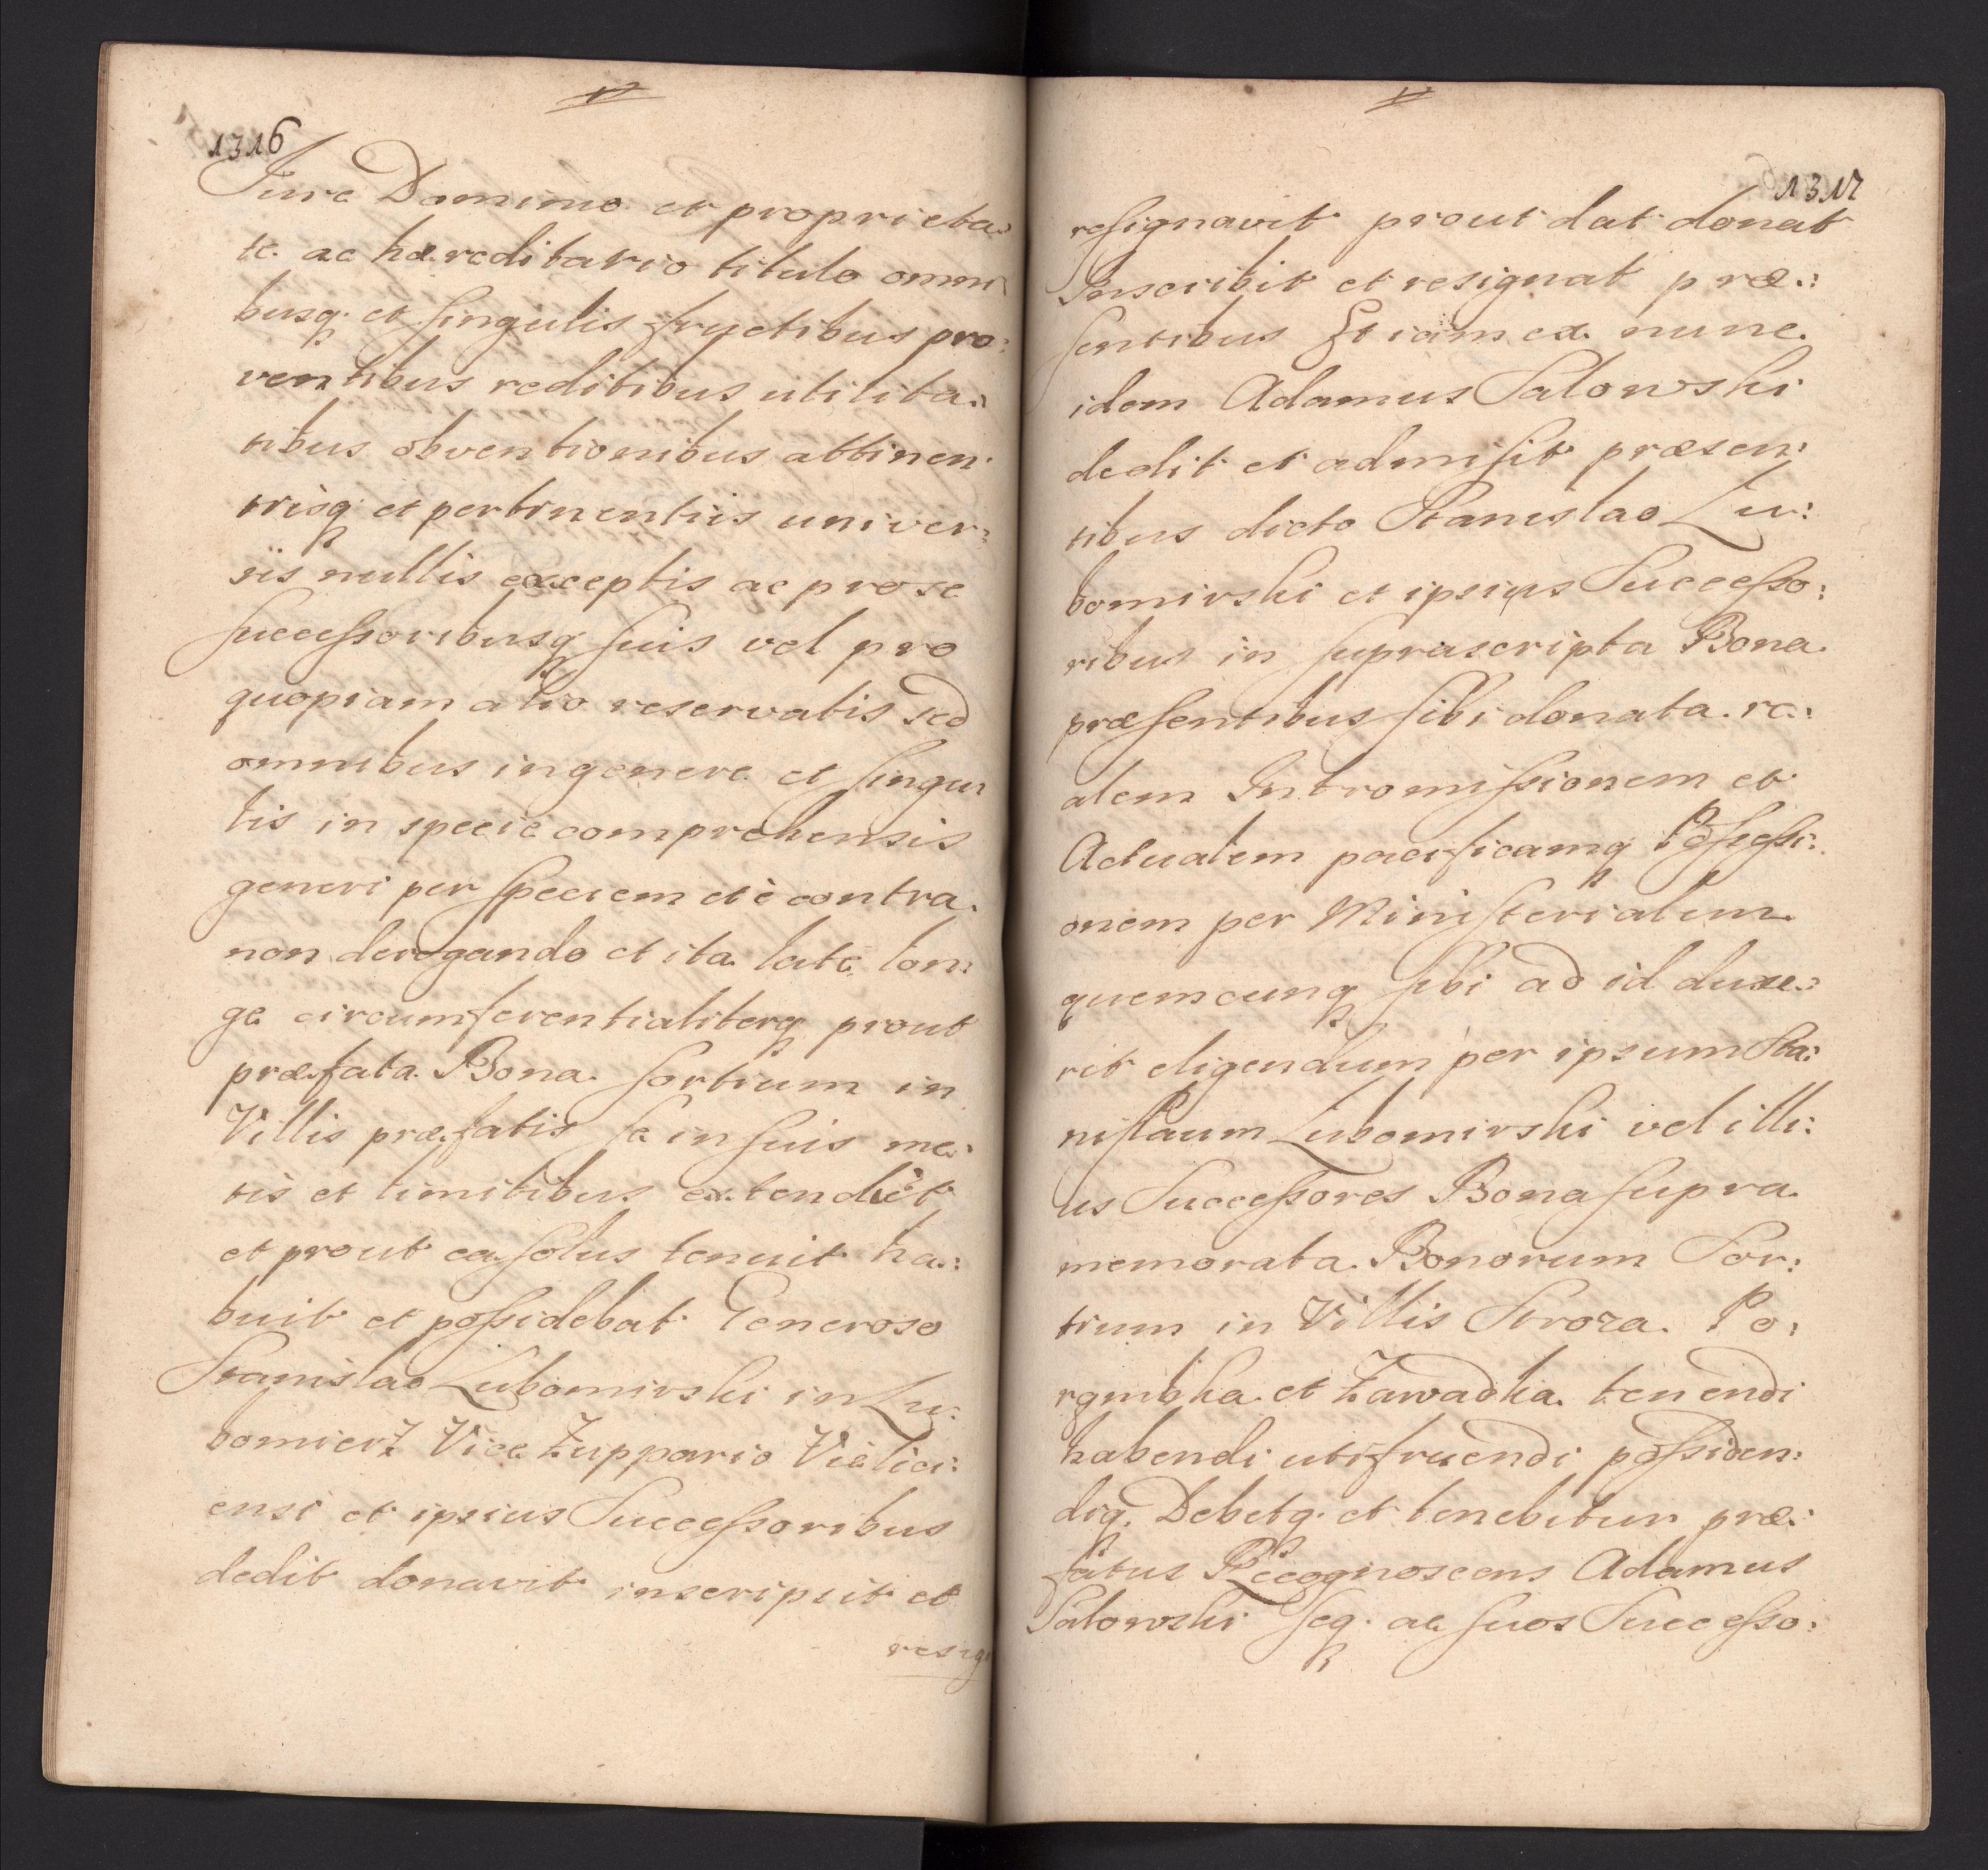 1316
Jure Dominio et proprieta:
te ac hæreditario titulo omni
busq et singulis fructibus pro:
ventibus reditibus utilita:
tibus obventionibus attinen:
tiisq et pertinentiis univer:
sis nullis exceptis ac pro se
successoribusq suis vel pro
quopiam alio reservatis sed
omnibus in genere et singu
lis in specie comprehensis
generi per speciem et è contra
non derogando et ita late lon:
ge circumferentialiterq prout
præfata Bona sortium in
Villis præfatis se in suis me:
tis et limitibus extendet
et prout ea solus tenuit ha:
buit et possidebat Generoso
Stanislao Lubomirski in Lu:
bomierz Vice Zuppario Vielici:
ensi et ipsius Successoribus
dedit donavit inscripsit et
resig
1317
resignavit prout dat donat
Inscribit et resignat præ:
sentibus Et iam ex nunc
idem Adamus Salowski
dedit et admisit præsen:
tibus dicto Stanislao Lu:
bomirski et ipsius Successo:
ribus in suprascripta Bona
præsentibus sibi donata re:
alem Intromissionem et
Actualem pacificamq Possessi:
onem per Ministerialem
quemcunq sibi ad id duxe:
rit eligendum per ipsum Sta:
nislaum Lubomirski vel illi:
us Successores Bona supra
memorata Bonorum Sor:
tium in Villis Stroza Po:
rembka et Zawadka tenendi
habendi utifruendi possiden:
diq. Debetq. et tenebitur præ:
fatus Recognoscens Adamus
Salowski seq. ac suos Successo: